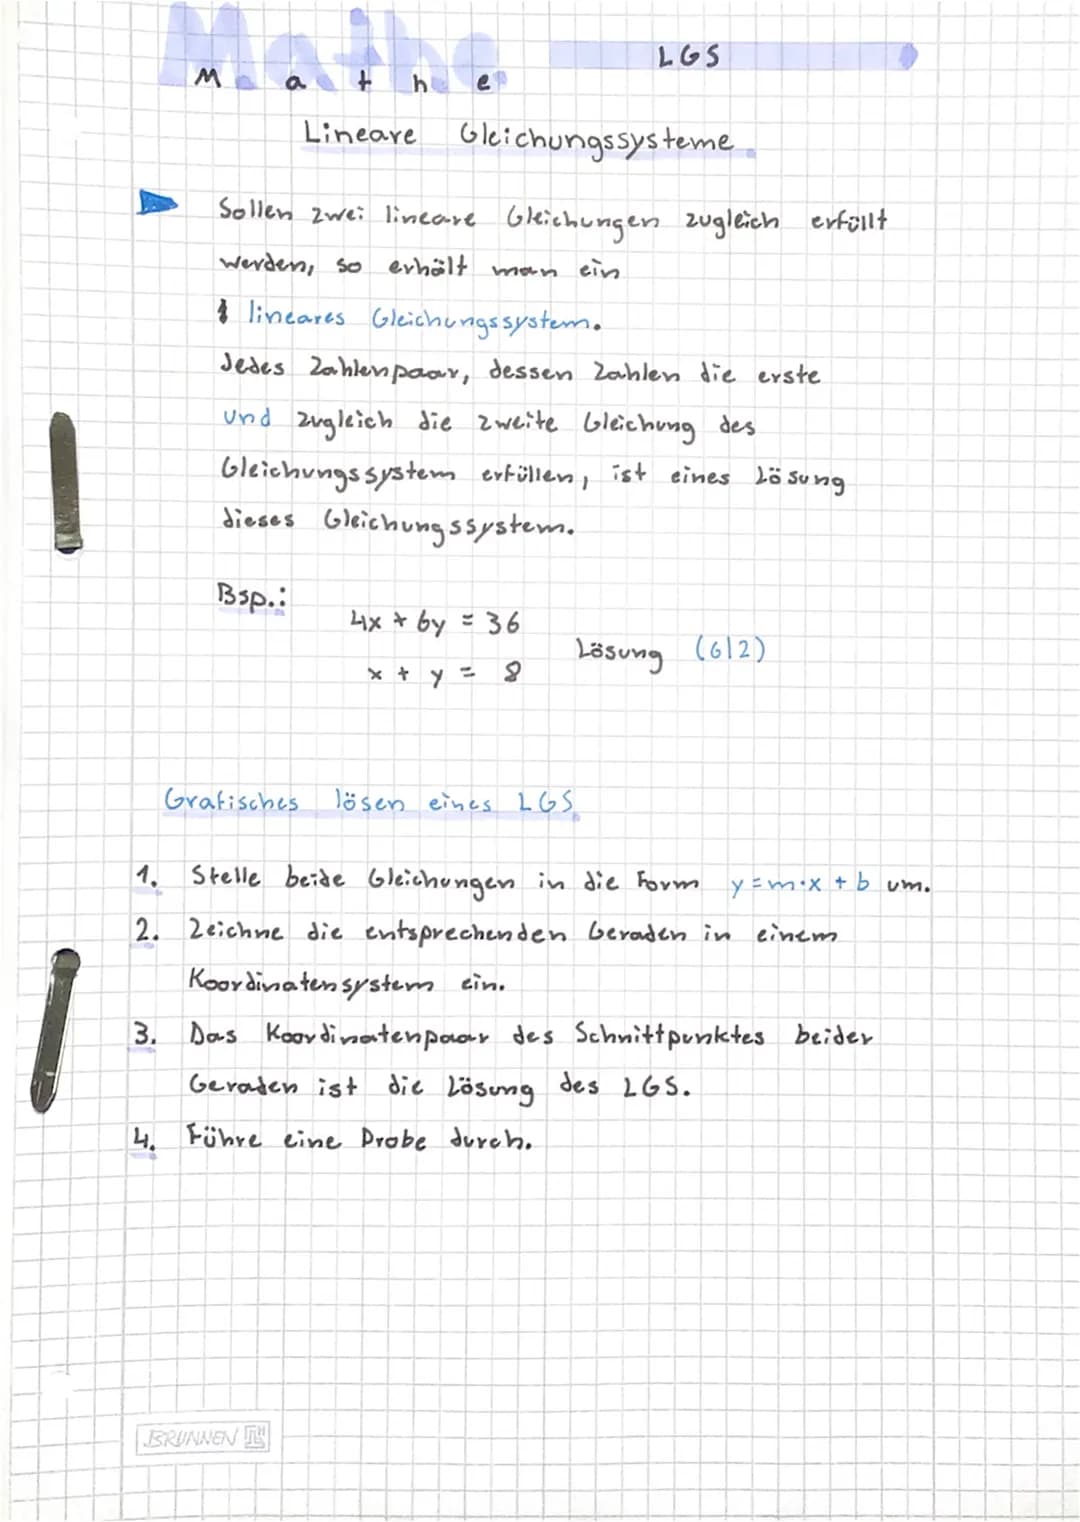 Mathe
LGS
M a t h e
Lineare Gleichungssysteme
Sollen zwei lineare Gleichungen zugleich erfüllt
werden, so erhält man ein
lineares Gleichungssystem.
Jedes Zahlenpaar, dessen Zahlen die erste
und zugleich die zweite Gleichung des
Gleichungssystem erfüllen, ist eines Lösung
dieses Gleichungssystem.
Bsp.:
4x + 6y = 36
Lösung (6|2)
x + y = 8
Grafisches lösen eines LGS
1. Stelle beide Gleichungen in die Form y=m·x + b um.
2. Zeichne die entsprechenden Geraden in einem
Koordinatensystem ein.
3. Das Koordinatenpaar des Schnittpunktes beider
Geraden ist die Lösung des LGS.
4. Führe eine Probe durch.
BRUNNEN